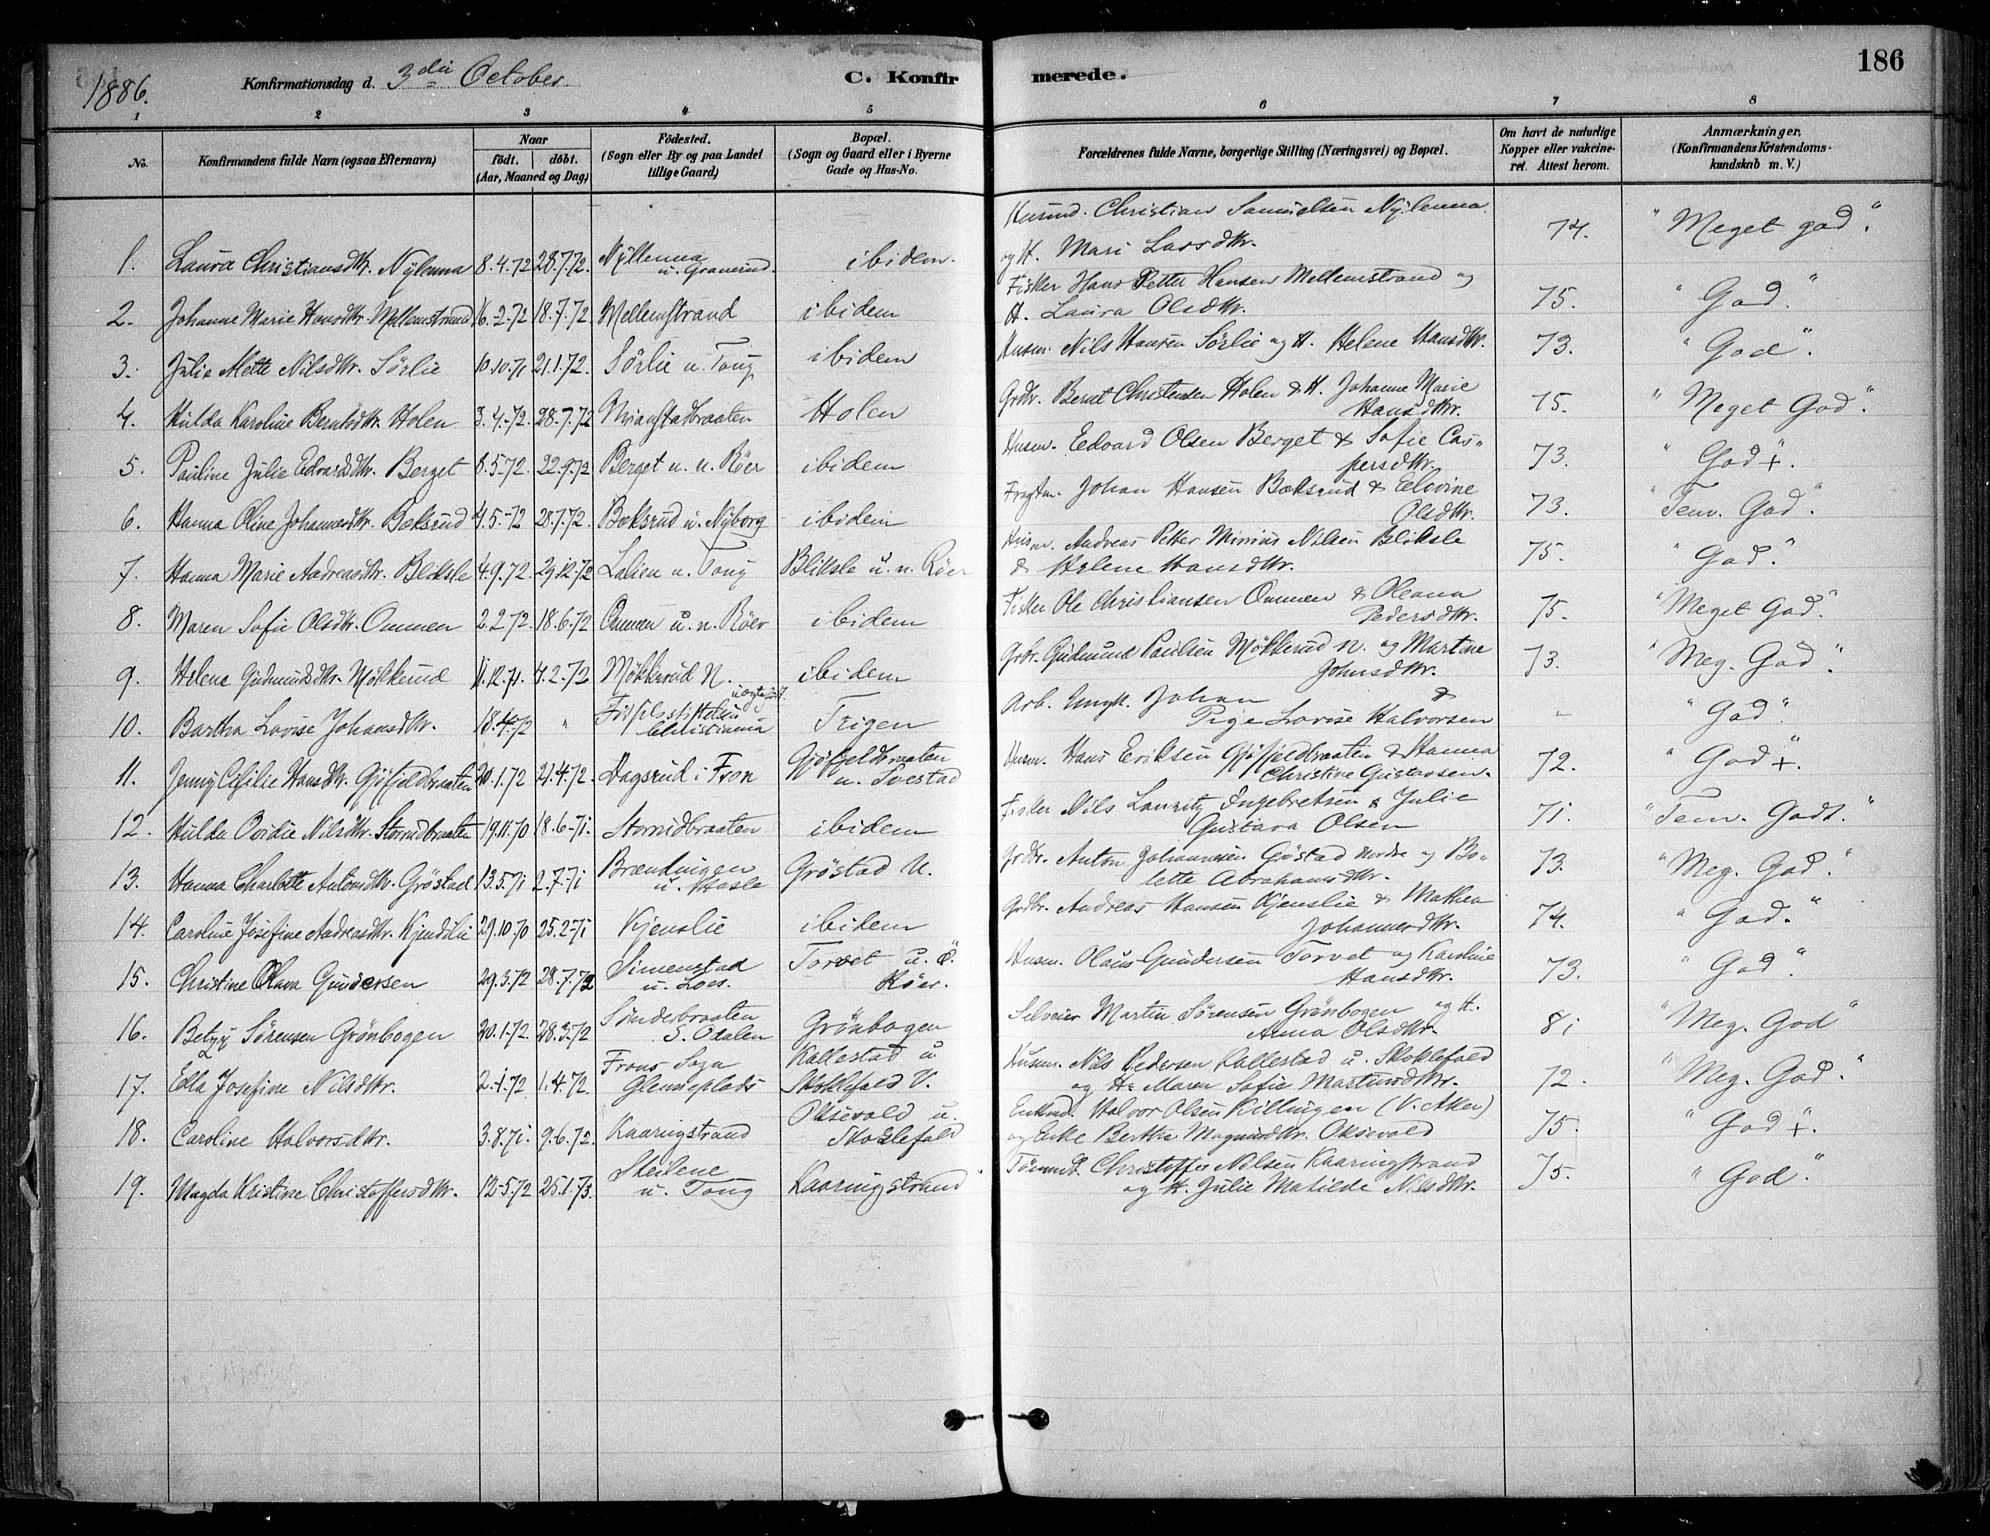 1886.
Konfirmationsdag d. 3die October.
C. Konfirmerede.
186
1 2 3 4 5 6 7 8
No.
Konfirmandens fulde Navn (ogsaa Efternavn)
Naar
födt. döbt.
(Aar, Maaned og Dag)
Födested.
(Sogn eller By og paa Landet
tillige Gaard)
Bopæl.
(Sogn og Gaard eller i Byerne
Gade og Hus-No.
Forældrenes fulde Navne, borgerlige Stilling (Næringsvei) og Bopæl.
Om havt de naturlige
Kopper eller vakcine-
ret. Attest herom.
Anmærkninger.
(Konfirmandens Kristendoms-
kundskab m. V.)
1. Laura Christiansdtr. Nylenna 8.4.72 28.7.72. Nyllenna u. Granerud. ibidem. Christian Samuelsen Nylenna og H. Mari Larsdtr. 74. "Meget god."
2. Johanne Marie Hansdtr. Mellemstrand 16.-2.72 18.-7.72. Mellemstrand ibidem Fisker Hans Petter Hansen Mellemstrand og H. Laura Olsdtr. 75. "God."
3. Julie Mette Nilsdtr. Sörlie 10.10.71 21.1.72. Sörlie u. Toug ibidem Husm. Nils Hansen Sörlie og H. Helene Hansdtr. 73. "God."
4. Hulda Karoline Berntsdtr. Holen 3.4.-72. 28.-7.72 Holen Grdbr. Bernt Christensen Holen & H. Johanne Marie Hansdtr. 75. "Meget God."
5. Pauline Julie Edvardsdtr. Berget 8.5.72. 22.9.72 Berget u. n. Röer ibidem Husm. Edvard Olsen Berget & Sofie Caspersdtr. 73. "God+."
6. Hanna Oline Johannesdtr. Bæksrud 4.5.-72 28.7.72. Bæksrud u. Nyborg ibidem Fragtm. Johan Hansen Bæksrud & Elovine Olsdtr. 73. "Tem. God."
7. Hanna Marie Andreasdtr. Bliksle 4.9.72. 29.12.72 Lalien u. Toug Bliksle u. n. Röer Husm. Andreas Petter Nilsen Bliksle & Helene Hansdtr. 75. "God."
8. Maren Sofie Olsdtr. Ommen 2.2.72. 18.6.72 Ommen u. n. Röer ibidem Fisker Ole Christiansen Ommen & Oleana Pedersdtr. 75. "Meget God."
9. Helene Gudmundsdtr. Mökkerud 11.12.71. 4.2.72 Mökkerud N. ibidem Grbr. Gudmund Paulsen Mökkerud N. og Martine Johnsdtr. 73. "Meg. God."
10. Bartha Lovise Johansdtr. 18.4.72 " Födselsstiftelsen Christiania Trigen Arb. Ungk. Johan & Pige Lovise Halvorsen "God."
11. Jenny Cesilie Hansdtr. Gjöfjeldbraaten 20.1.72 21.4.72. Dagsrud i Fron Gjöfjeldbraaten u. Svestad Husm. Hans Eriksen Gjöfjeldbraaten & Hanna Christine Gustavsen. 72. "God+."
12. Hulda Ovidie Nilsdtr. Storrudbraaten 19.11.70 18.6-71. Storrudbraaten ibidem Fisker Nils Lauritz Ingebretsen & Julie Gustava Olsen 71. "Tem. Godt."
13. Hanna Charlotte Antonsdtr. Gröstad 13.5.71 2.7.71 Brændingen u. Hasle Gröstad N. Grdbr. Anton Johannesen Göstad nordre og Bolette Abrahamsdtr. 73. "Meg. God."
14. Caroline Josefine Andreasdtr. Kjendslie 29.10.70 25.2-71 Kjenslie ibidem Grdbr. Andreas Hansen Kjenslie & Mathea Johannesdtr. 74. "God."
15. Christine Olava Gundersen 29.3.72 28.7.72 Simenstad u. Loes. Torvet u. ö. Röer. Husm. Olaus Gundersen Torvet og Karoline Hansdtr. 73. "God."
16. Betzy Sörensen Grönbogen 20.1.-72. 28.3.72 Sönderbraaten S. Odalen Grönbogen Selveier Martin Sörensen Grönbogen og H. Anna Olsdtr. 81 "Meg. God"
17. Ella Josefine Nilsdtr. 2.-1.72 1.4.72. Frons Sogn Glenneplads Kallestad u. Skoklefald V. Husm. Nils Pedersen Kallestad u. Skoklefald og H. Maren Sofie Martinsdtr. 72. "Meg. God."
18. Caroline Halvorsdtr. 3.8.71. 9.6.72. Kaaringstrand Oksevold u. Skoklefald Enkmd. Halvor Olsen Killingen (V. Aker) og Enke Berthe Magnusdtr. Oksevold 75. "God+."
19. Magda Kristine Christoffersdtr. 12-5.72 26.1.73. Steilene u. Toug Kaaringstrand Tömmd. Christoffer Nilsen Kaaringstrand og H. Julie Matilde Nilsdtr. 75. "God."